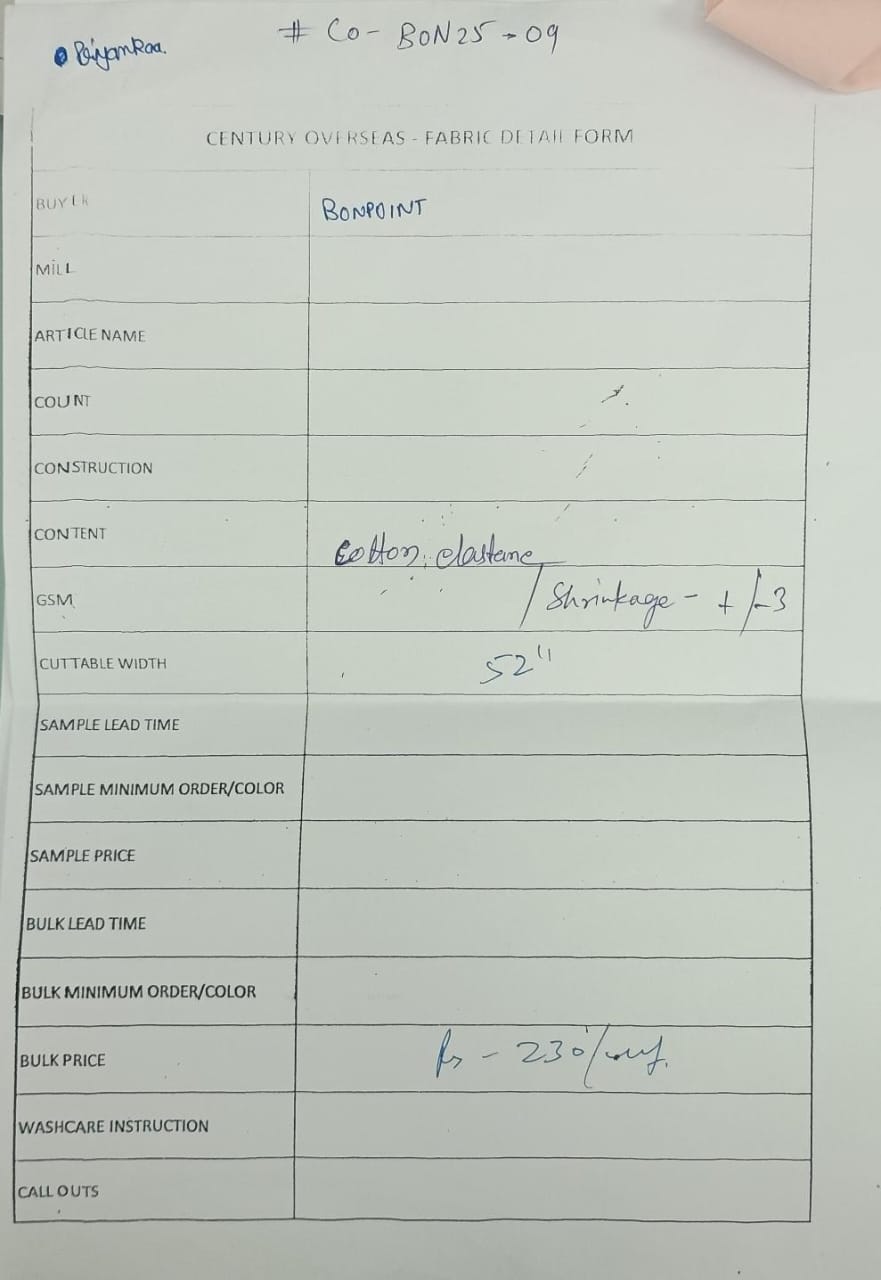 # CO - BON25 - 09
Priyankaa.
CENTURY OVERSEAS - FABRIC DETAIL FORM
BUYER BONPOINT
MILL
ARTICLE NAME
COUNT
CONSTRUCTION
CONTENT Cotton, elastane
GSM / Shrinkage - +/-3
CUTTABLE WIDTH 52"
SAMPLE LEAD TIME
SAMPLE MINIMUM ORDER/COLOR
SAMPLE PRICE
BULK LEAD TIME
BULK MINIMUM ORDER/COLOR
BULK PRICE Rs - 230/
WASHCARE INSTRUCTION
CALL OUTS